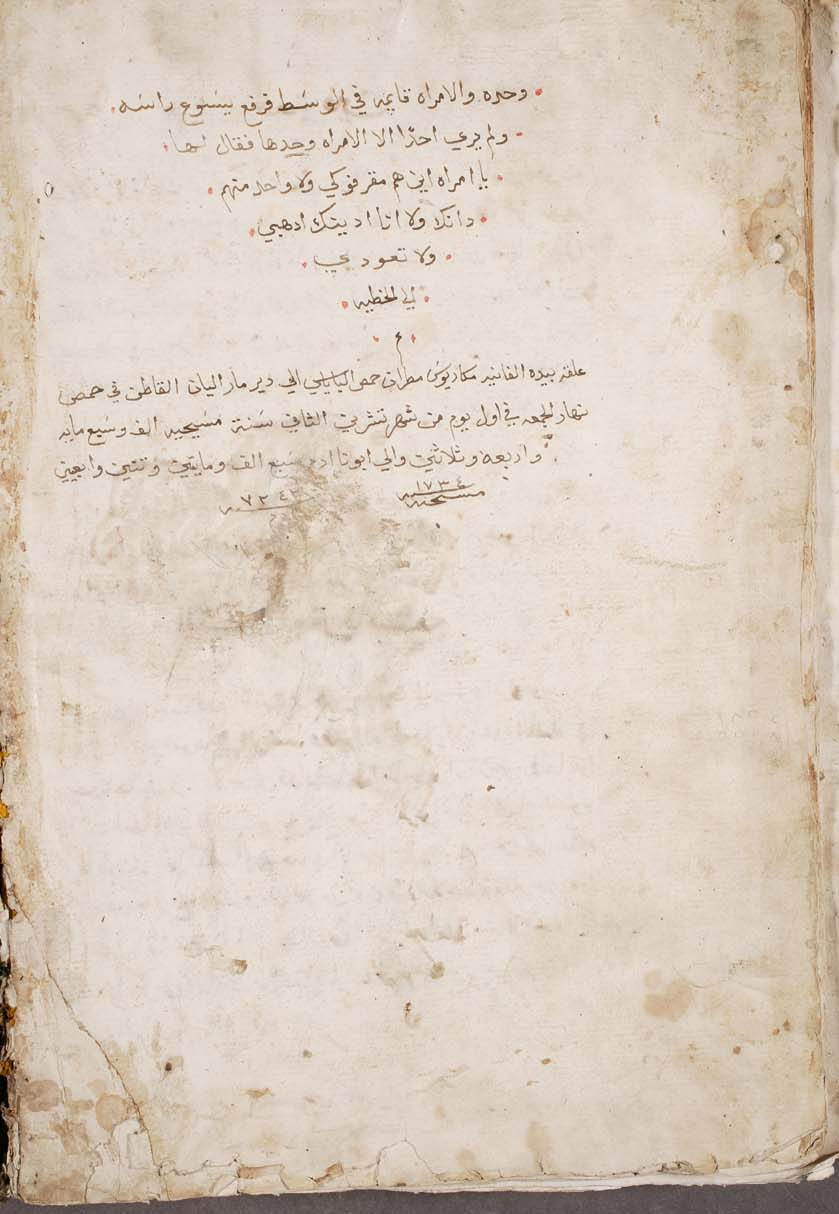 وحده والامراه قايمه في الوسط فرفع يسوع راسه
ولم يري احدًا الا الامراه وحدها فقال لها
يا امراه اين هم مقرفوكي ولا واحد منهم
دانك ولا انا ادينك ادهبي
ولا تعودي
الي الخطيه
م
علقه بيده الفانيه مكاريوس مطران حمص الي دير مار اليان القاطن في حمص
نهار الجمعه في اول يوم من شهر تشرين الثاني سنة مسيحيه الف وسبع مايه
واربعه وثلاثين والي ابونا ادم سبع الف ومايتين وتنين واربعين
١٧٣٤ ٧٢٤٢
مسيحيه